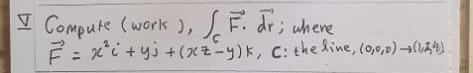 V Compute (work), ∫_C F⃗. dr⃗; where
F⃗ = x²i + yj + (xz-y)k, C: the line, (0,0,0)→(1,2,4)